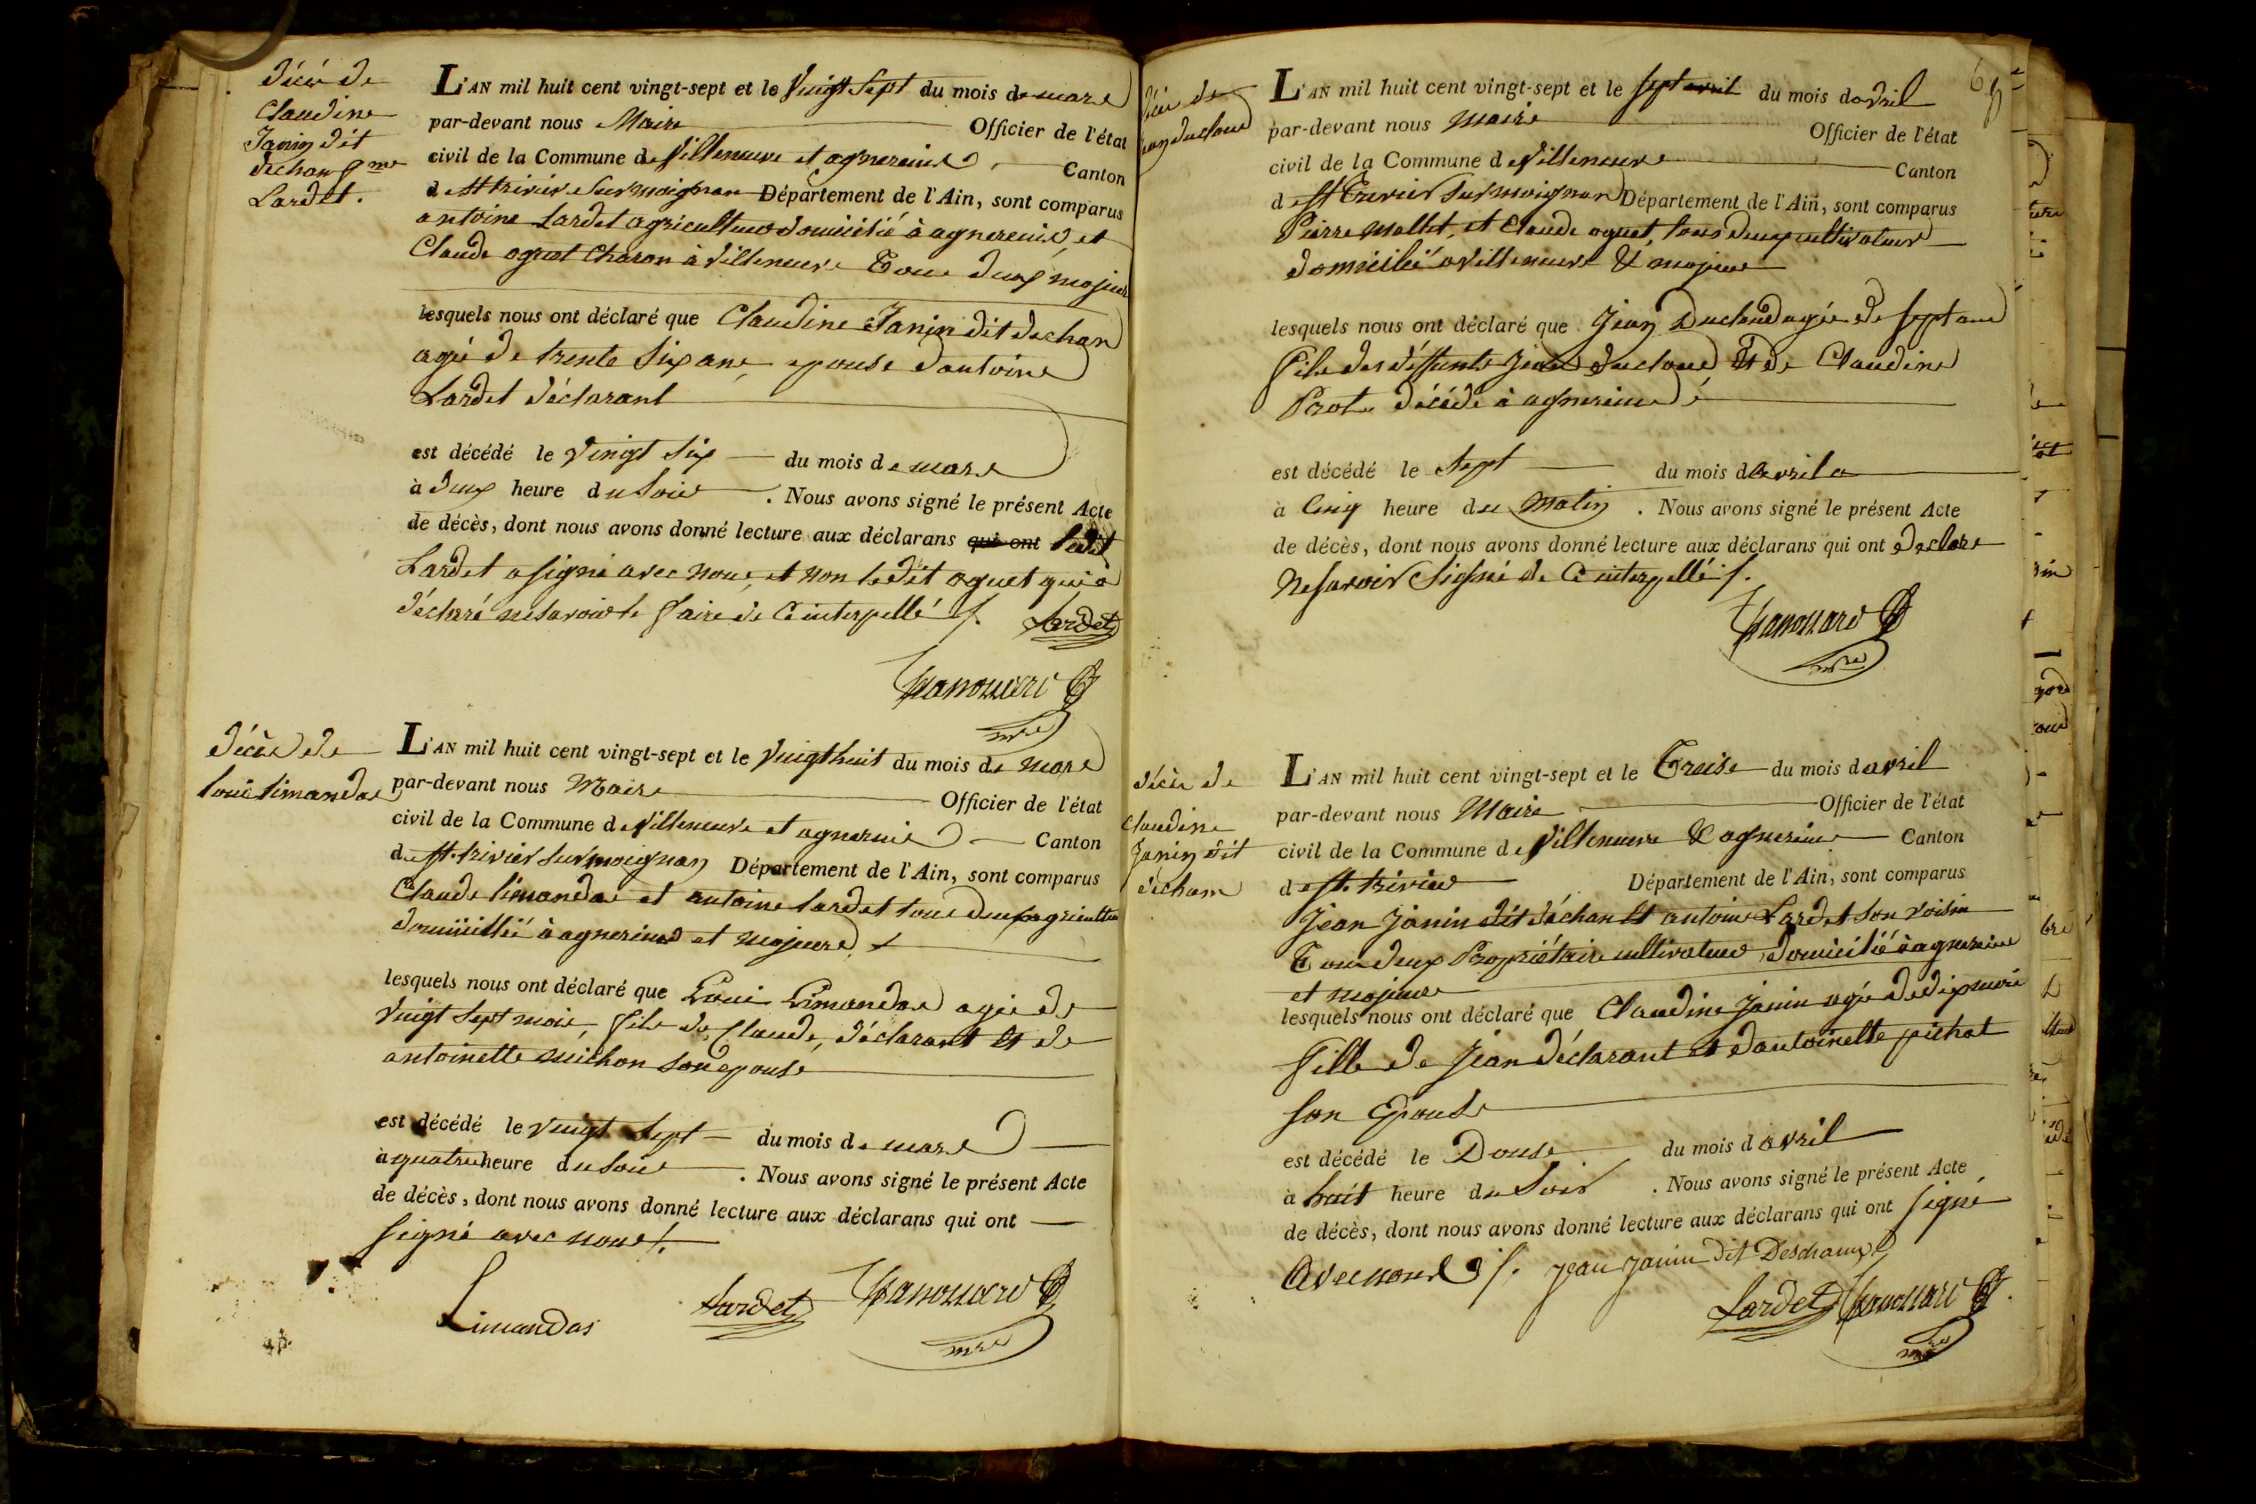 décès de
Claudine
Janin dit
dechan fme
Lardet.
L'AN mil huit cent vingt-sept et le vingt sept du mois de mars
par-devant nous Maire Officier de l'état
civil de la Commune de Villeneuve et agnereins Canton
de st trivier sur moignan Département de l'Ain, sont comparus
antoine Lardet agriculteur domicilié à agnereins, et
Claude oguet Charon à villeneuve Tous deux majeurs
lesquels nous ont déclaré que Claudine Janin dit dechan
agé de trente six ans epouse d'antoine
Lardet déclarant
est décédé le vingt six du mois de mars
à deux heure du soir . Nous avons signé le présent Acte
de décès, dont nous avons donné lecture aux déclarans qui ont ledit
Lardet a signé avec nous, et non ledit oguet qui a
déclaré ne savoir le faire de ce interpellé /.
Lardet
mre
décès de
louis limandas
L'AN mil huit cent vingt-sept et le vingt huit du mois de mars
par-devant nous Maire Officier de l'état
civil de la Commune de villeneuve et agnereins Canton
de st. trivier sur moignan Département de l'Ain, sont comparus
Claude limandas et antoine lardet tous deux agriculteurs
domicillié à agnereins et majeurs
lesquels nous ont déclaré que Louis Limandas agée de
vingt sept mois, fils de Claude, déclarant et de
antoinette michon son epouse
est décédé le vingt sept du mois de mars
à quatre heure du soir . Nous avons signé le présent Acte
de décès, dont nous avons donné lecture aux déclarans qui ont
signé avec nous /.
Limandas Lardet
mre
décès de
jean ducloud
L'AN mil huit cent vingt-sept et le sept avril du mois d'avril
par-devant nous Maire Officier de l'état
civil de la Commune de villeneuve Canton
de st Trivier sur moignan Département de l'Ain, sont comparus
Pierre mallet, et Claude oguet, tous deux cultivateurs
domicilié à villeneuve & majeurs
lesquels nous ont déclaré que Jean Ducloud agée de sept ans
fils des déffunts Jean ducloud, et de Claudine
Prote décédé à agnereins
est décédé le sept du mois d'avril
à Cinq heure du Matin . Nous avons signé le présent Acte
de décès, dont nous avons donné lecture aux déclarans qui ont declare
ne savoir Signé de ce interpellé /.
mre
décès de
claudine
Janin dit
décham
L'AN mil huit cent vingt-sept et le Treise du mois d'avril
par-devant nous Maire Officier de l'état
civil de la Commune de villeneuve & agnereins Canton
de st. trivier Département de l'Ain, sont comparus
Jean Janin dit déchan et antoine Lardet son voisin
Tous deux Propriétaire cultivateurs, domicilié à agnereins
et majeurs
lesquels nous ont déclaré que Claudine Janin agé de dix mois
fille de Jean déclarant et d'antoinette pichat
son Epouse
est décédé le Douse du mois d'avril
à huit heure du Soir . Nous avons signé le présent Acte
de décès, dont nous avons donné lecture aux déclarans qui ont signé
Avec nous /. jean janin dit Deschamp
Lardet
mre